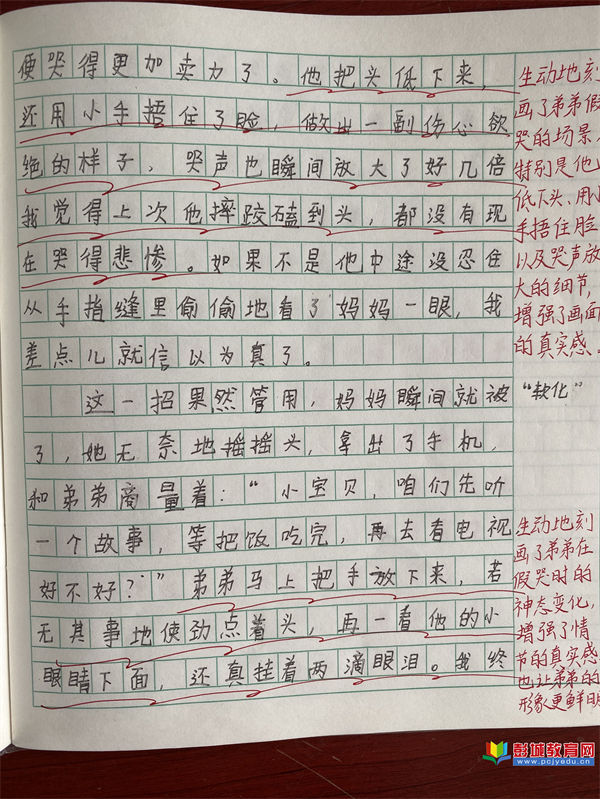 便哭得更加卖力了。他把头低下来，
还用小手捂住了脸，做出一副伤心欲
绝的样子，哭声也瞬间放大了好几倍
我觉得上次他摔跤磕到头，都没有现
在哭得悲惨。如果不是他中途没忍住
从手指缝里偷偷地看了妈妈一眼，我
差点儿就信以为真了。
这一招果然管用，妈妈瞬间就被
了，她无奈地摇摇头，拿出了手机，
和弟弟商量着：“小宝贝，咱们先听
一个故事，等把饭吃完，再去看电视
好不好？”弟弟马上把手放下来，若
无其事地使劲点着头，再一看他的小
眼睛下面，还真挂着两滴眼泪。我终
生动地刻
画了弟弟假
哭的场景，
特别是他
低下头、用小
手捂住脸
以及哭声放
大的细节，
增强了画面
的真实感。
“软化”
生动地刻
画了弟弟在
假哭时的
神态变化，
增强了情
节的真实感
也让弟弟的
形象更鲜明
彭城教育网
www.pcjyedu.cn